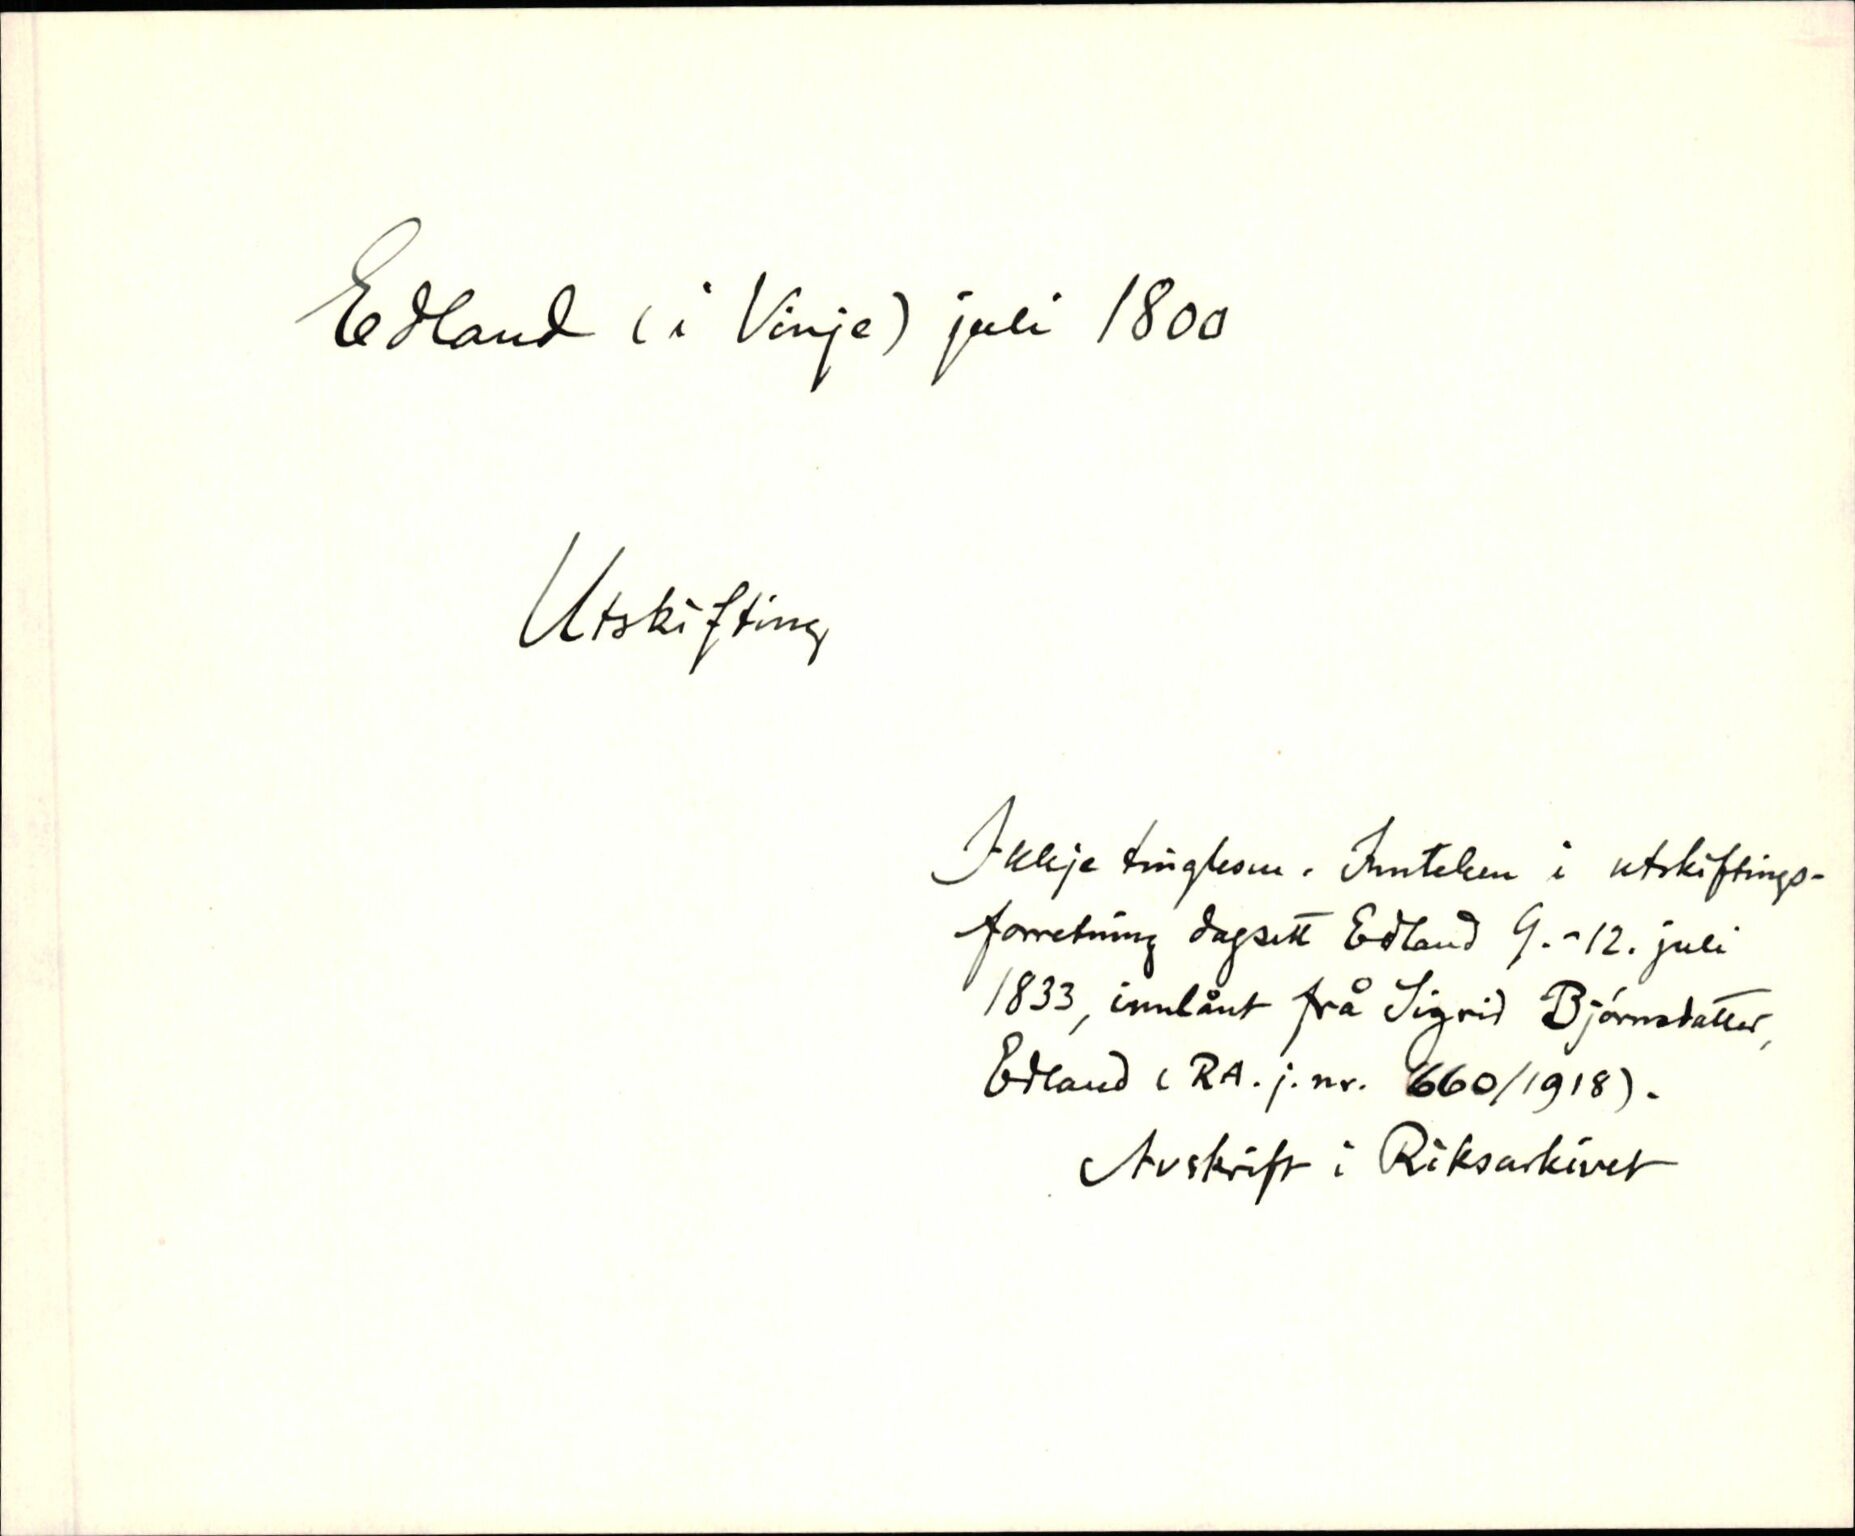 Edland (i Vinje) juli 1800
Utskifting
Ikkje tinglesen. Innteken i utskiftings-
forretning dagsett Edland 9.-12. juli
1833, innlånt frå Sigrid Bjørnsdatter,
Edland (RA. j.nr. 660/1918).
Avskrift i Riksarkivet